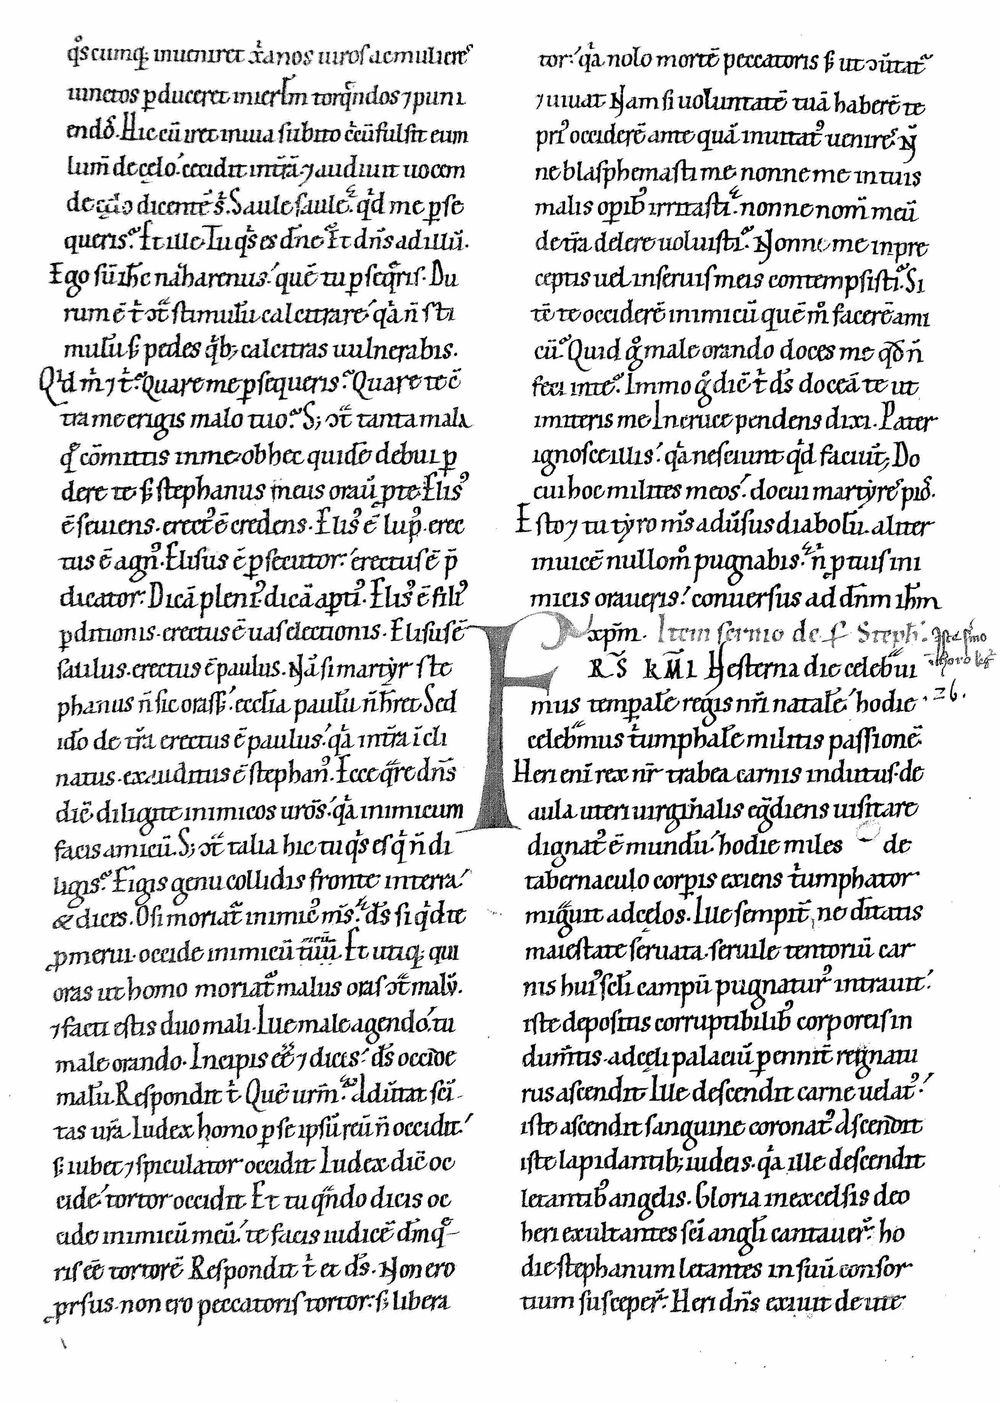 q̊scumq; inueniret x̄anos uiros ac mulieres
iunctos p̱duceret in ierl̄m torq̄ndos ⁊ puni
endō. Hic cū iret in uia subito c̄cūfulsit eum
lum̄ de cęlo. cecidit in t̄rā. ⁊ audiuit uocem
de cęlo dicentē s͛. Saule saule. q̇d me p̱se
queris. Et ille. Tu q̇s es dn̄e. Et dn̄s ad illū.
Ego sū ih̄c naȝarenus. quē tu p̱seq̄ris. Du
rum ē t͛ ↄt̄ stimulū calcitrare. q͛a n̄ sti
mulū s; pedes q͛b; calcitras uulnerabis.
Q͛d m͛ ⁊ t͛. Quare me p̱sequeris. Quare te ↄ̄
tra me erigis malo tuo. S; ↄt̄ tanta mala
q̨ cōmittis in me. ob hec quidē debui p̱
dere te. s; stephanus meus orau͛ p̱ te. Elis᾽
ē seuiens. erect᾽ ē credens. Elis᾽ ē lup᾽. erec
tus ē agn᾽. Elisus ē p̱secutor. erectus ē p̄
dicator. Dicā pleni᾽. dicā apti᾽. Elis᾽ ē fili᾽
p̱ditionis. erectus ē uas electionis. Elisus ē
saulus. erectus ē paulus. Nā si martẏr ste
phanus n̄ sic orass;. ecclīa paulū n̄ hr̄et. Sed
idō de t̄ra erectus ē paulus. q͛a in t̄ra īcli
natus. exauditus ē stephan᾽. Ecce q̄re dn̄s
diē. diligite inimicos ur̄os. q͛a inimicum
facis amicū. S; ↄt̄ talia hic tu q̇s es q͛ n̄ di
ligis. Figis genu collidis fronte in terra.
& dicis. O si moriat̄ inimic᾽ m̄s. d̄s si q͛d te
p̱merui. occide inimicū meū. Et utiq; qui
oras ut homo moriat̄ malus oras ↄt̄ malū.
⁊ facti estis duo mali. Ille male agendo. tu
male orando. Incipis ee᾽ ⁊ dicis. d̄s occide
malū. Respondit t͛. Quē urm̄. Adu͛tat sei
tas ur̄a. Iudex homo p̱ se ipsū reū n̄ occidit.
s; iubet ⁊ spiculator occidit. Iudex diē oc
cide. tortor occidit. Et tu q̄ndo dicis oc
cide inimicū meū. te facis iudicē. dm̄ q̨
ris ee᾽ tortorē. Respondit t͛ et d̄s. Non ero
p̱rsus. non ero peccatoris tortor. s; libera
tor. q͛a nolo mortē peccatoris s; ut ↄu͛tat᾽
⁊ uiuat. Nam si uoluntatē tuā haberē te
pri᾽ occiderē ante quā inuitat᾽ uenires. N̄
ne blasphemasti me. nonne me in tuis
malis opib᾽ irritasti. nonne nom̄ meū
de t̄ra delere uoluisti. Nonne me in pre
ceptis uel in seruis meis contempsisti. Si
tē te occiderē inimicū quē m̊ facerē ami
cū. Quid g̊ male orando doces me q̊d n̄
feci in te. Immo g̊ diē t͛ d̄s doceā te ut
imiteris me. In cruce pendens dixi. Pater
ignosce illis. q͛a nesciunt q͛d faciūt. Do
cui hoc milites meos. docui martẏres pios.
Esto ⁊ tu tẏro m̄s adūsus diabolū. aliter
inuicē nullom̊ pugnabis. n͛ p̱ tuis ini
micis oraueris. conuersus ad dn̄m ih̄m
xp̄m. Item sermo de s̄ Steph̄.
Hesterna die celebui
mus temp̱alē regis nr̄i natalē. hodie
celebm̄us t͛umphalē militis passionē.
Heri eni᾽ rex nr̄ trabea carnis indutus. de
aula uteri uirginalis eḡdiens uisitare
dignat᾽ ē mundū. hodie miles de
tabernaculo corpis exiens t͛umphator
mig̊uit ad cęlos. Ille sempit̄ne dītatis
maiestate seruata. seruile tentoriū car
nis hui᾽ sc̄li campū pugnatur᾽ intrauit.
iste depositis corruptibilib᾽ corporeis in
dumtis. ad celi palaciū p̱ennit̄ regnatu
rus ascendit. Ille descendit carne uelat᾽.
iste ascendit sanguine coronat᾽. Ascendit
iste lapidantib; iudeis. q͛a ille descendit
letantib᾽ angelis. Gloria in excelsis deo
heri exultantes sc̄i angl̄i cantauer̄. ho
die stephanum letantes in suū consor
tium susceper̄. Heri dn̄s exiuit de ute